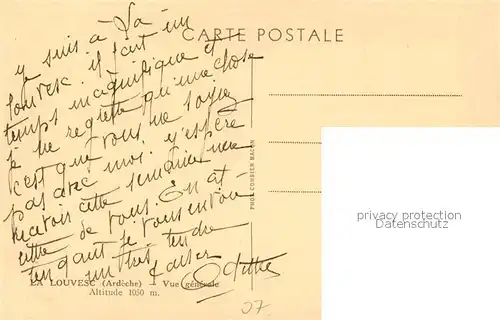 CARTE POSTALE
je suis a La
Louvesc il fait un
temps magnifique et
je ne regrette qu'une chose
c'est que vous ne soyez
pas avec moi. j'espère
recevoir cette semaine une
lettre de vous. En at-
tendant je vous envoie
un très tendre
baiser
PHOT. COMBIER MACON
LA LOUVESC (Ardèche) — Vue générale
Altitude 1050 m.
07
privacy protection
Datenschutz